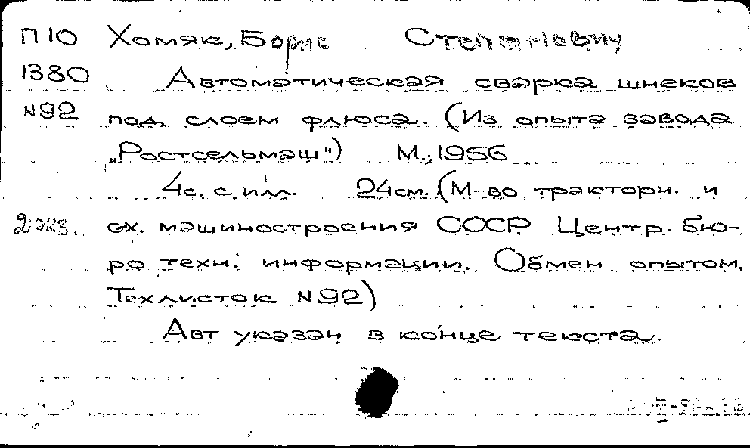 П10 Хомяк, Борис Степанович
1380 Автоматическая сварка шнеков
N92 под слоем флюса. (Из опыта завода
„Ростсельмаш") М., 1956
4с. с илл. 24см. (М-во тракторн. и
2 экз. сх. машиностроения СССР Центр. бю-
ро техн. информации. Обмен опытом.
Техлисток N92)
Авт указан в конце текста.